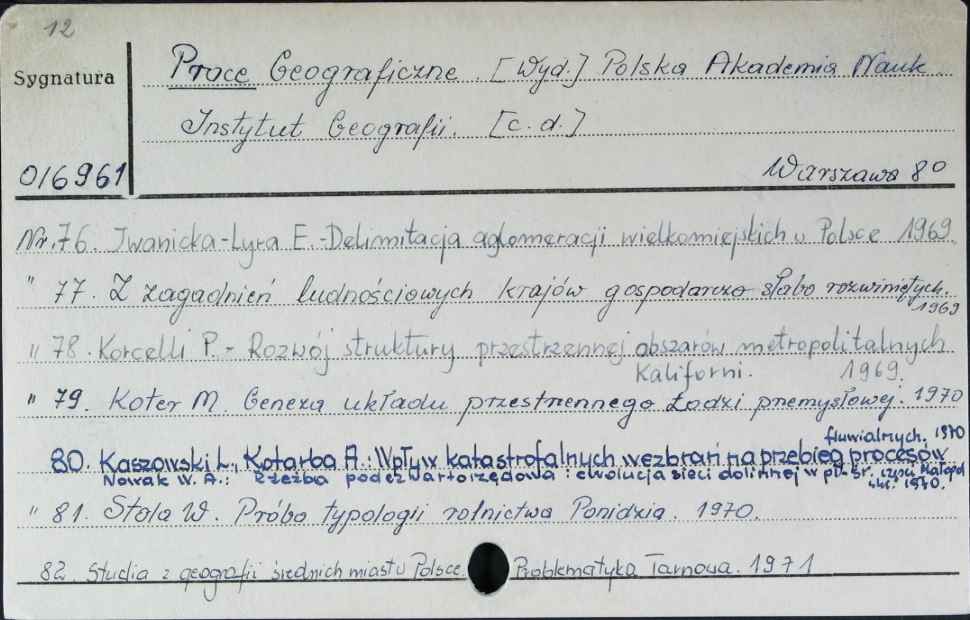 12
Sygnatura
016961
Prace Geograficzne. [Wyd.] Polska Akademia Nauk
Instytut Geografii. [c.d.]
Warszawa 80
Nr. 76. Iwanicka-Lyra E. - Delimitacja aglomeracji wielkomiejskich w Polsce 1969.
" 77. Z zagadnień ludnościowych krajów gospodarczo słabo rozwiniętych.
1969
" 78. Korcelli P. - Rozwój struktury przestrzennej obszarów metropolitalnych
Kaliforni. 1969.
" 79. Koter M. Geneza układu przestrzennego Łodzi przemysłowej. 1970
fluwialnych. 1970
80. Kaszowski L., Kotarba A.: Wpływ katastrofalnych wezbrań na przebieg procesów
Nowak W. A.: Rzeźba podczwartorzędowa i ewolucja sieci dolinnej w pł. śr. części
1970.
" 81. Stola W. Próba typologii rolnictwa Ponidzia. 1970.
82. Studia z geografii średnich miast w Polsce. Problematyka Tarnowa. 1971